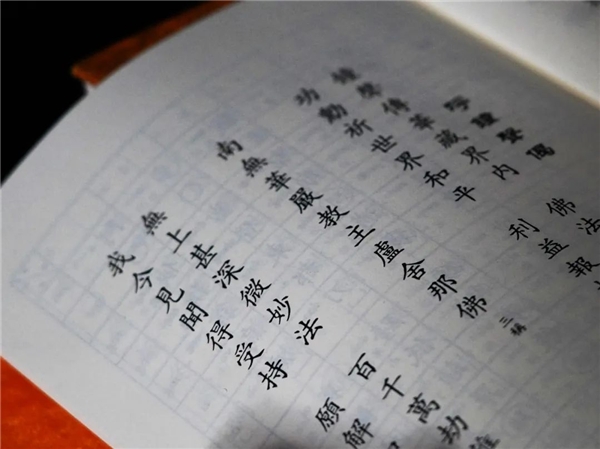 鐘聲傳華藏界內 佛法
功勳祈世界和平 利益報
南無華嚴教主盧舍那佛 三稱
無上甚深微妙法 百千萬劫難
我今見聞得受持 願解